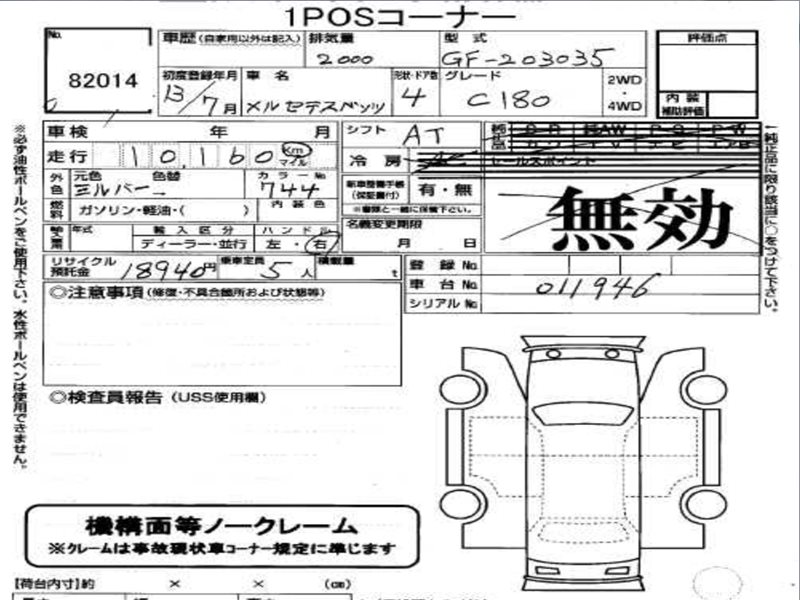 1POSコーナー
No. 82014
車歴(自家用以外は記入) 排気量 2000 型式 GF-203035 評価点
初度登録年月 13/7月 車名 メルセデスベンツ 形状・ドア数 4 グレード C180 2WD・4WD 内装補助評価
車検 年 月 シフト AT
走行 10,160 Km マイル 冷房 セールスポイント
外色 元色 シルバー 色替 カラーNo 744 新車整備手帳(保証書付) 有・無 無効
燃料 ガソリン・軽油・( ) 内装色 ※書類と一緒に保管下さい。
年式 輸入区分 ディーラー・並行 ハンドル 左・右 名義変更期限 月 日
リサイクル預託金 18940円 乗車定員 5人 積載量 t 登録No.
車台No. 011946
シリアルNo.
◎注意事項(修復・不具合箇所および状態等)
◎検査員報告(USS使用欄)
機構面等ノークレーム
※クレームは事故現状車コーナー規定に準じます
【荷台内寸】約 × × (cm)
※必ず油性ボールペンをご使用下さい。水性ボールペンは使用できません。
↑純正品に限り該当に○をつけて下さい。